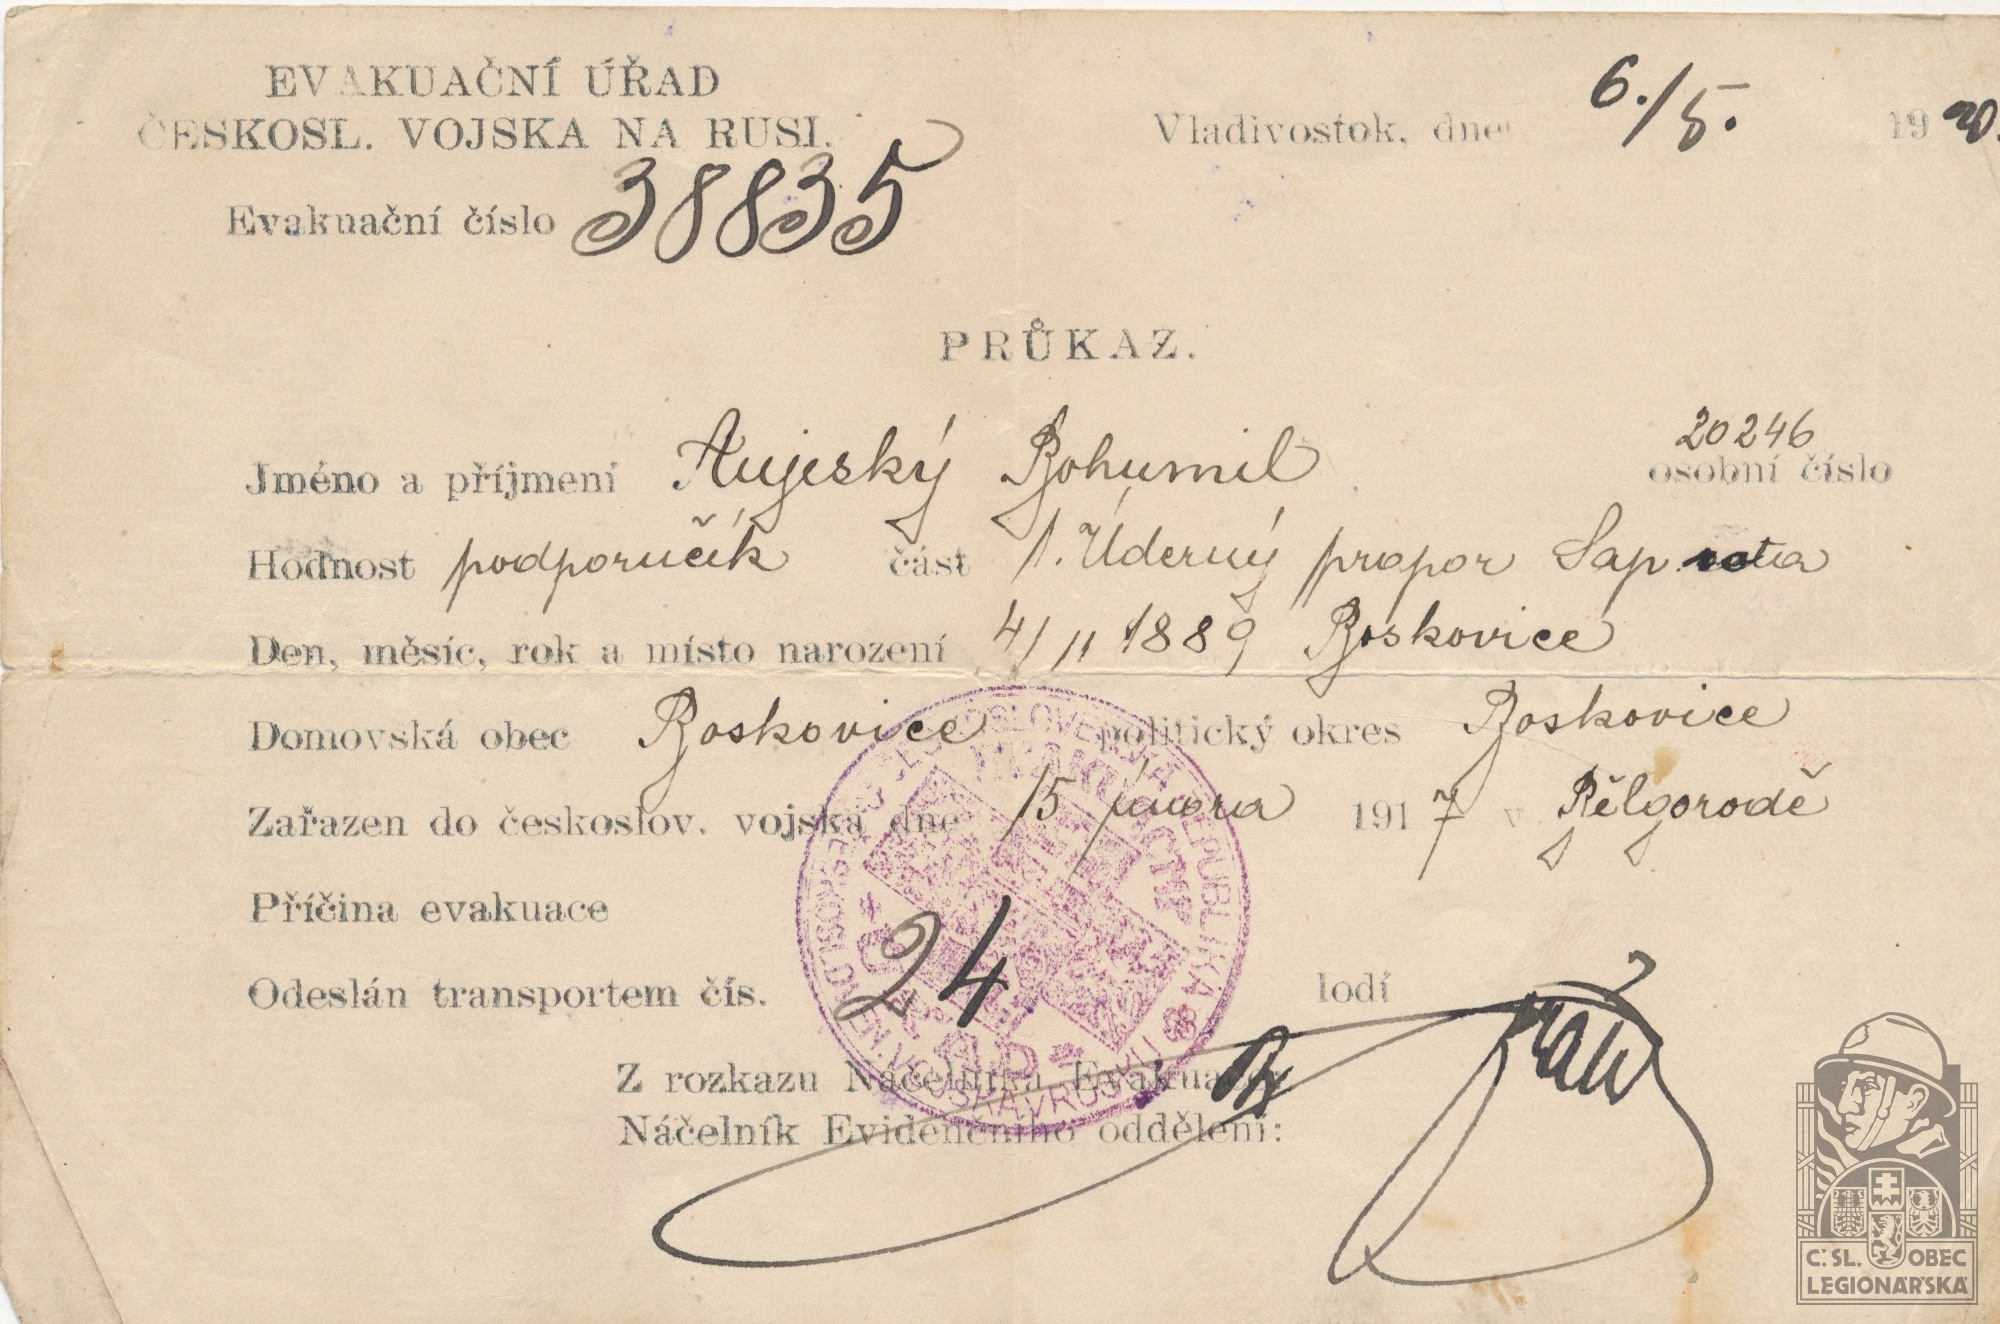 EVAKUAČNÍ ÚŘAD
ČESKOSL. VOJSKA NA RUSI.
Vladivostok, dne 6./5. 1920.
Evakuační číslo 38835
PRŮKAZ.
20246
Jméno a příjmení Aujeský Bohumil osobní číslo
Hodnost podporučík část 1. Úderný prapor Sap. rota
Den, měsíc, rok a místo narození 4/11 1889 Boskovice
Domovská obec Boskovice politický okres Boskovice
Zařazen do českoslov. vojska dne 15 února 1917 v Bělgorodě
Příčina evakuace
Odeslán transportem čís. 24 lodí
Z rozkazu Náčelníka Evakuace:
Náčelník Evidenčního oddělení:
Č. SL. OBEC
LEGIONÁŘSKÁ